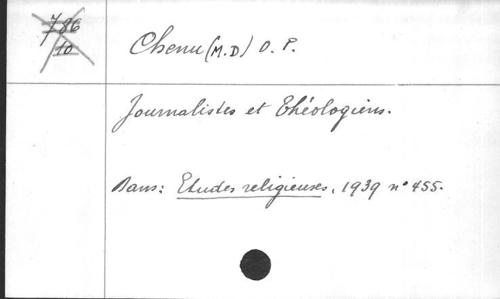 786
10
Chenu (M.D) O. P.
Journalistes et Théologiens.
Dans: Etudes religieuses, 1939 n° 455.